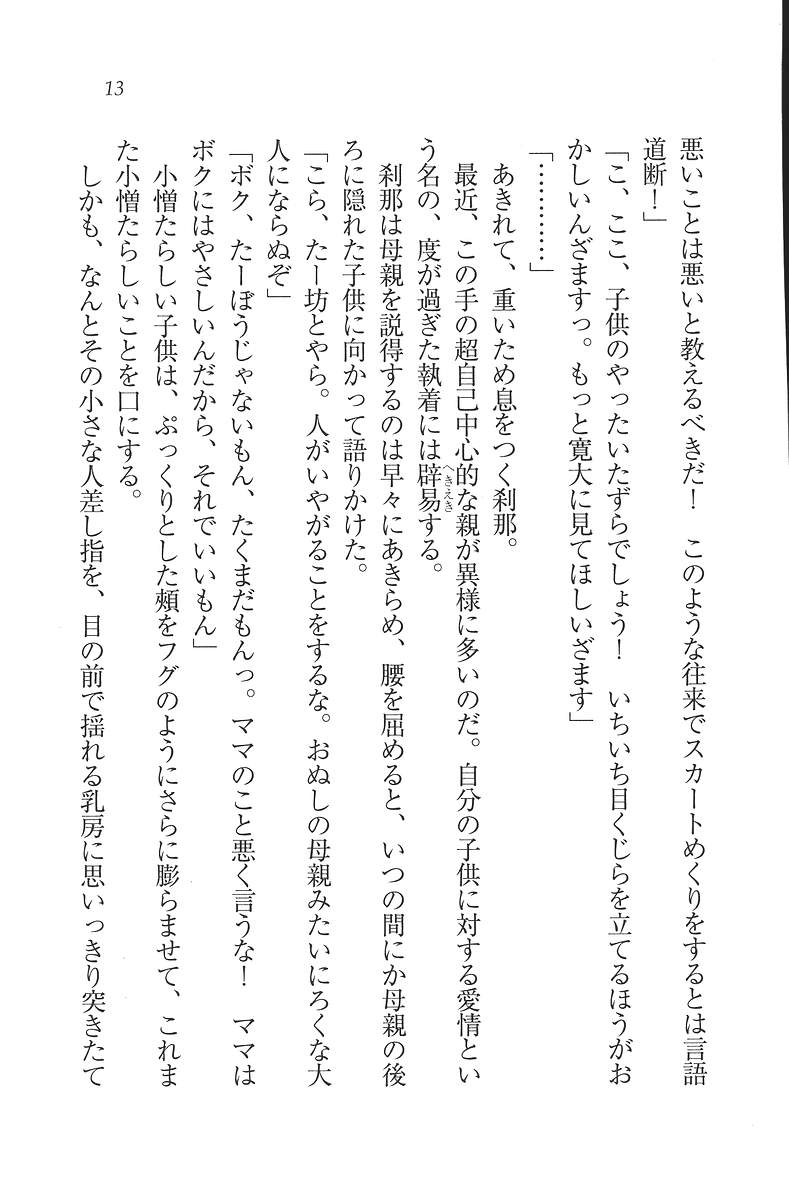 13
悪いことは悪いと教えるべきだ！　このような往来でスカートめくりをするとは言語
道断！」
「こ、ここ、子供のやったいたずらでしょう！　いちいち目くじらを立てるほうがお
かしいんざますっ。もっと寛大に見てほしいざます」
「…………」
　あきれて、重いため息をつく刹那。
　最近、この手の超自己中心的な親が異様に多いのだ。自分の子供に対する愛情とい
う名の、度が過ぎた執着には辟易へきえきする。
　刹那は母親を説得するのは早々にあきらめ、腰を屈めると、いつの間にか母親の後
ろに隠れた子供に向かって語りかけた。
「こら、たー坊とやら。人がいやがることをするな。おぬしの母親みたいにろくな大
人にならぬぞ」
「ボク、たーぼうじゃないもん、たくまだもんっ。ママのこと悪く言うな！　ママは
ボクにはやさしいんだから、それでいいもん」
　小憎たらしい子供は、ぷっくりとした頰をフグのようにさらに膨らませて、これま
た小憎たらしいことを口にする。
　しかも、なんとその小さな人差し指を、目の前で揺れる乳房に思いっきり突きたて